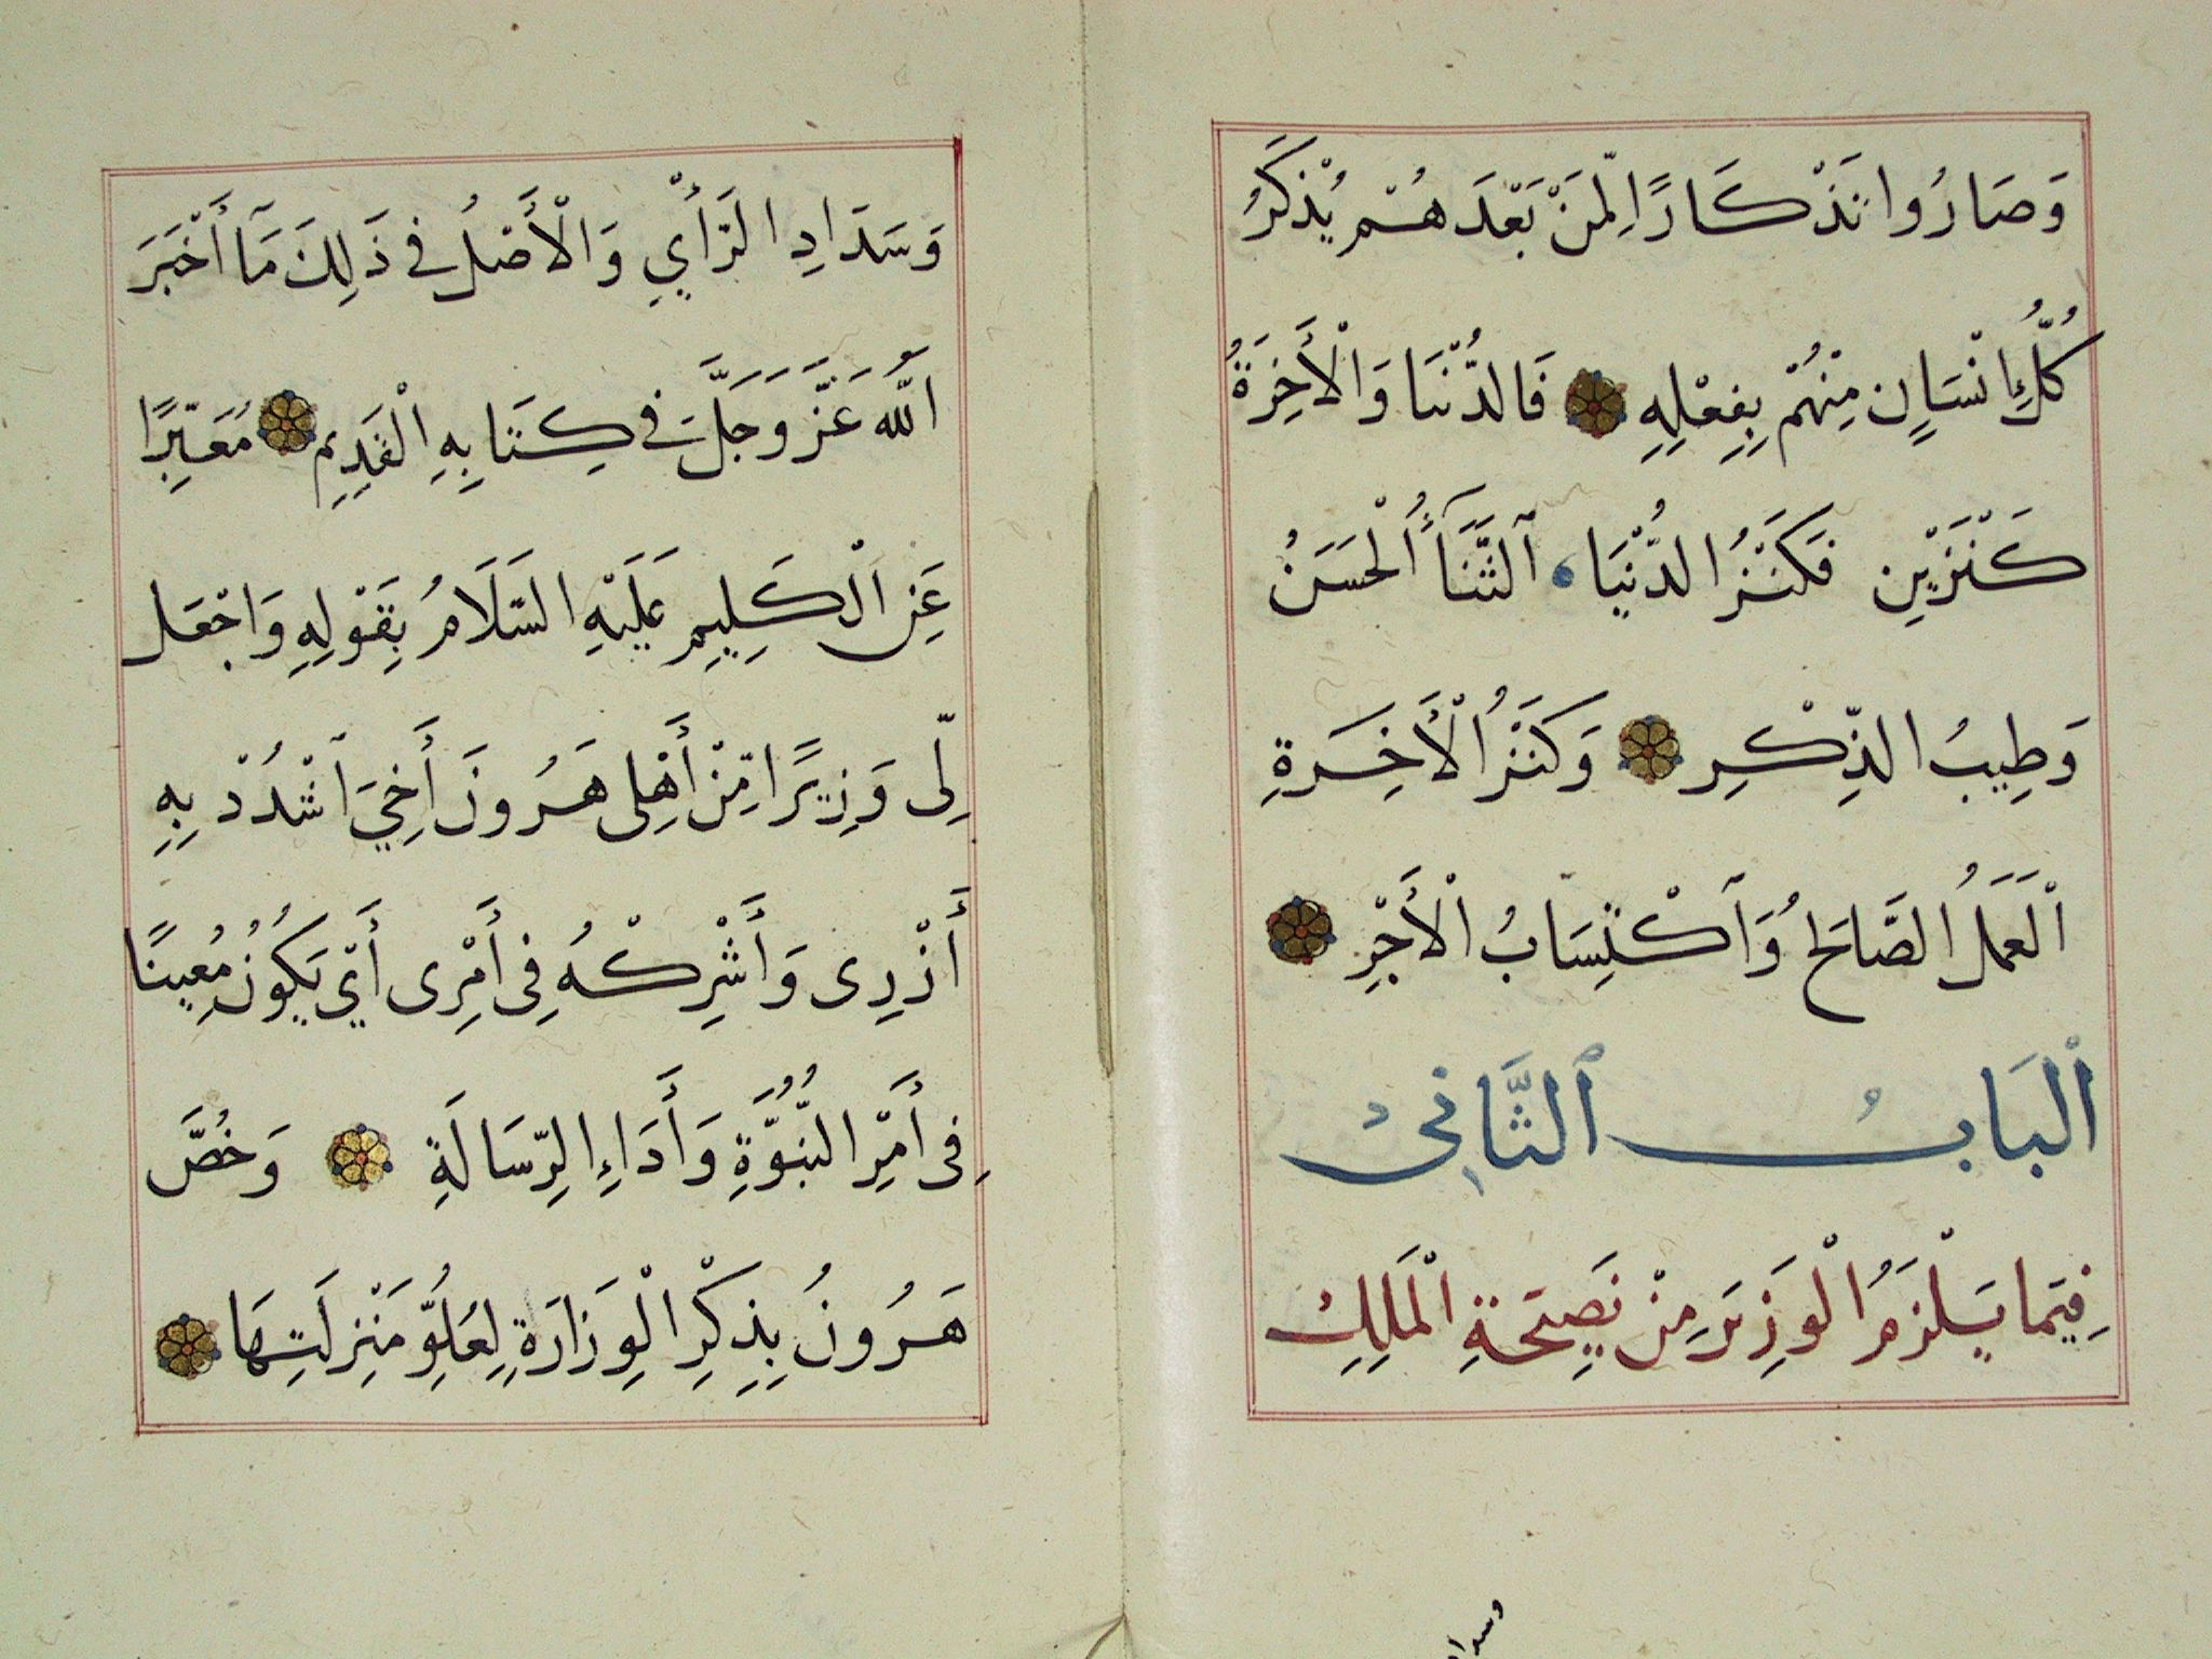 وَصَارُوا تَذْكَارًا لِّمَنْ بَعْدَهُمْ يُذْكَرُ
كُلُّ إِنْسَانٍ مِنْهُمْ بِفِعْلِهِ فَالدُّنْيَا وَالْأَخِرَةُ
كَنْزَيْنِ فَكَنْزُ الدُّنْيَا ٱلثَّنَآءُ الْحَسَنُ
وَطِيبُ الذِّكْرِ وَكَنْزُ الْأَخِرَةِ
اْلعَمَلُ الصَّالِحُ وَٱكْتِسَابُ الْأَجْرِ
اْلبَابُ ٱلثَّانِيْ
فِيَما يَلْزَمُ الْوَزِيرَ مِنْ نَصِيحَةِ الْمَلِكِ
وسداد
وَسَدَادِ الرَّأْيِ وَالْأَصْلُ فِي ذَلِكَ مَآ أَخْبَرَ
اللّٰهُ عَزَّ وَجَلَّ فِي كِتَابِهِ الْقَدِيمِ مُعَبِّرًا
عَنِ الْكَلِيمِ عَلَيْهِ السَّلَامُ بِقَوْلِهِ وَاجْعَل
لِّى وَزِيرًا مِّنْ أَهْلِى هَرُونَ أَخِيَ ٱشْدُدْ بِهِ
أَزْرِى وَأَشْرِكْهُ فِى أَمْرِى أَيْ يَكُونُ مُعِينًا
فِى أَمْرِ النُّبُوَّةِ وَأَدَاءِ الرِّسَالَةِ وَخُصَّ
هَرُونُ بِذِكْرِ الْوِزَارَةِ لِعُلُوِّ مَنْزِلَتِهَا